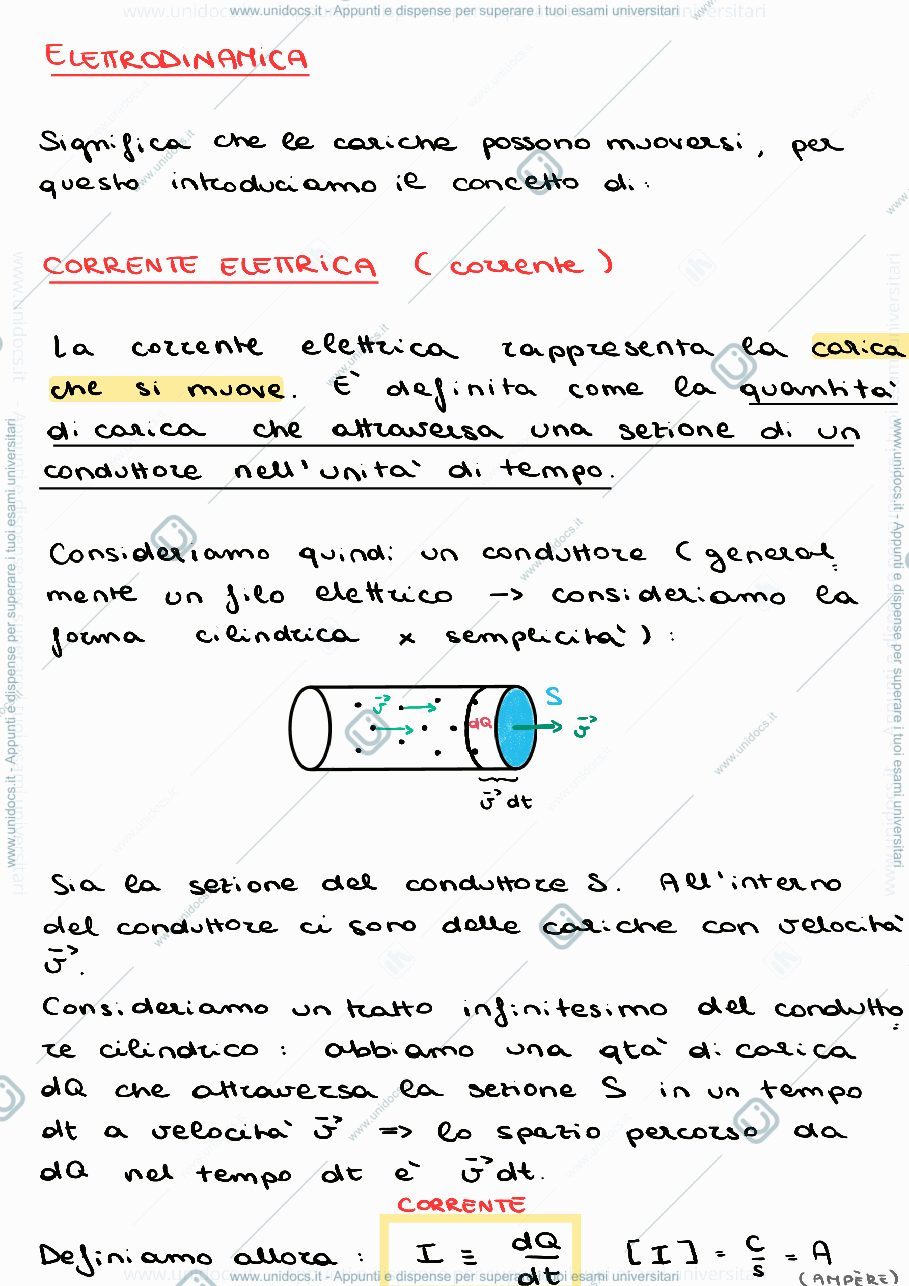 www.unidocs.it - Appunti e dispense per superare i tuoi esami universitari
ELETTRODINAMICA
Significa che le cariche possono muoversi, per
questo introduciamo il concetto di:
CORRENTE ELETTRICA (corrente)
La corrente elettrica rappresenta la carica
che si muove. È definita come la quantità
di carica che attraversa una sezione di un
conduttore nell'unità di tempo.
Consideriamo quindi un conduttore (general
mente un filo elettrico -> consideriamo la
forma cilindrica x semplicità):
v⃗ dQ S v⃗
v⃗ dt
Sia la sezione del conduttore S. All'interno
del conduttore ci sono delle cariche con velocità
v⃗.
Consideriamo un tratto infinitesimo del condutto
re cilindrico: abbiamo una qtà di carica
dQ che attraversa la sezione S in un tempo
dt a velocità v⃗ => lo spazio percorso da
dQ nel tempo dt è v⃗ dt.
CORRENTE
Definiamo allora: I ≡ dQ/dt [I] = C/s = A
(AMPÈRE)
www.unidocs.it - Appunti e dispense per superare i tuoi esami universitari
www.unidocs.it - Appunti e dispense per superare i tuoi esami universitari
www.unidocs.it - Appunti e dispense per superare i tuoi esami universitari